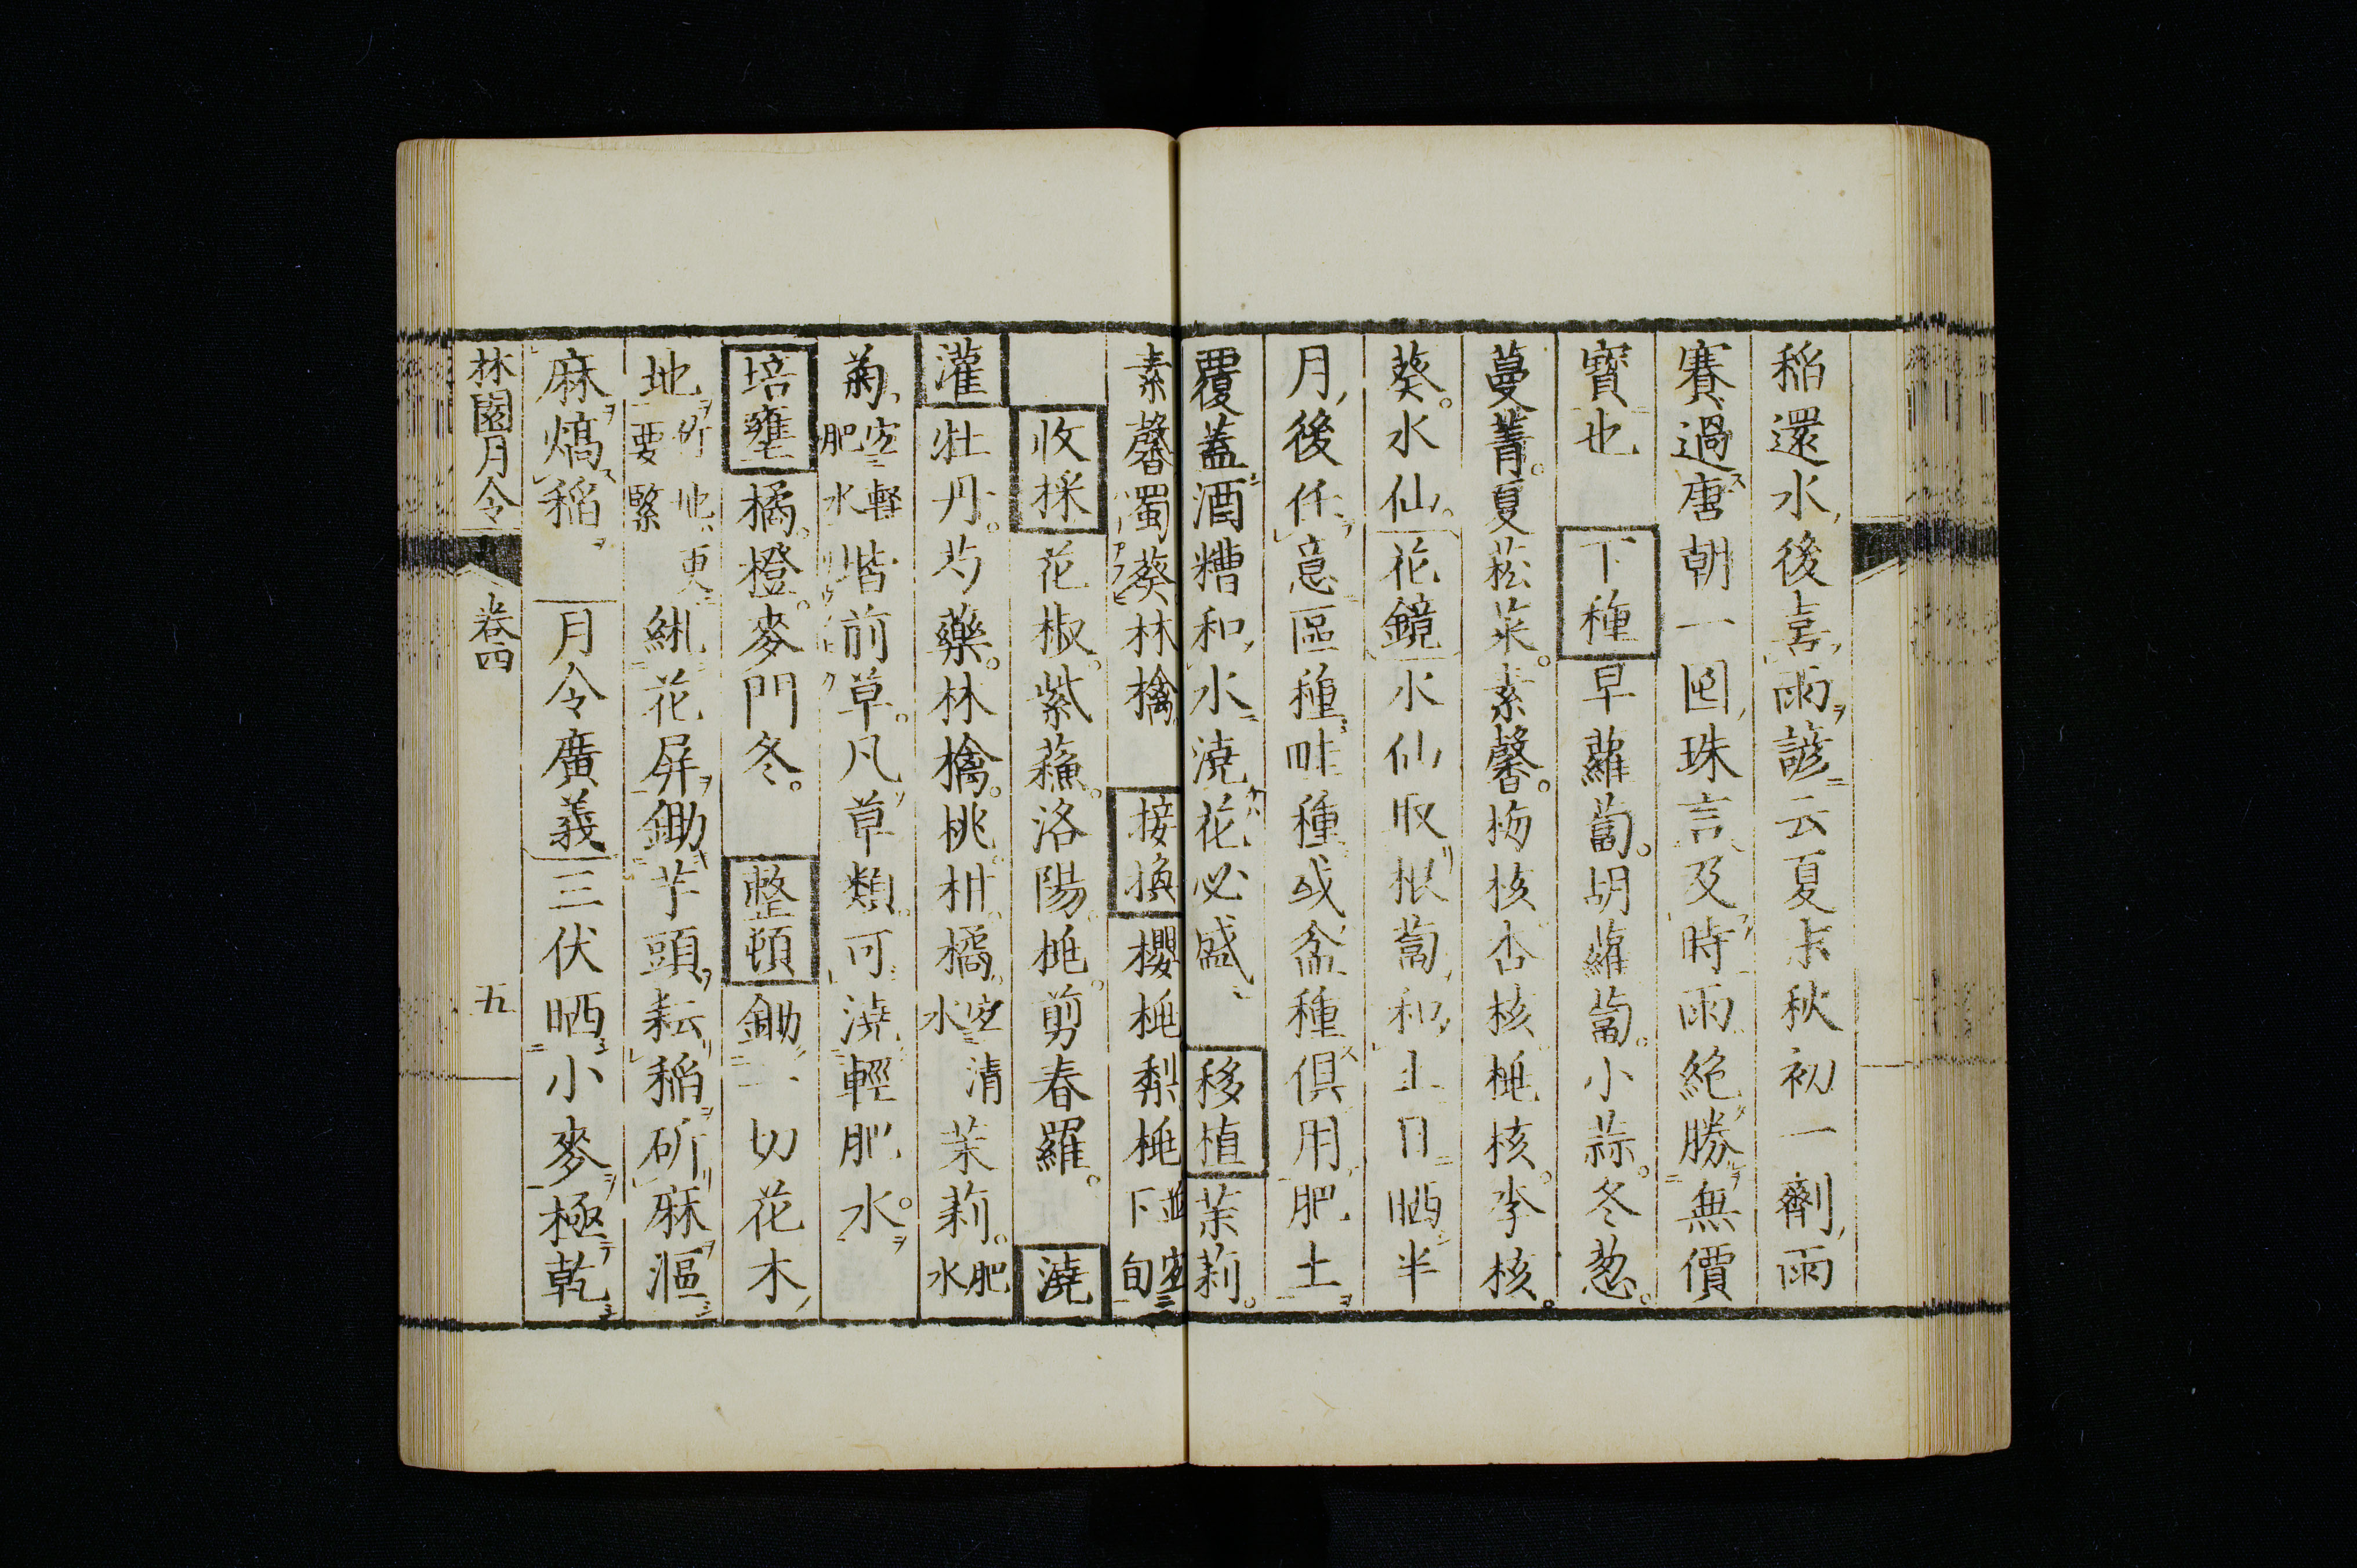 稲還水後喜雨諺云夏末秋初一劑雨
賽過唐朝一囤珠言及時雨絶勝無價
寳也 下種 早蘿蔔。胡蘿蔔。小蒜。冬葱。
蔓菁。夏菘菜。素馨。梅核杏核桃核。李核。
葵。水仙。花鏡水仙收根蔔和土日晒半
月後任意區種畦種或盆種俱用肥土
覆蓋酒糟和水澆花必盛 移植 茉莉。
素馨蜀葵林檎 接換 櫻桃梨桃並宜下旬
收採 花椒。紫蘓。洛陽。桃。剪春羅。 澆
灌 牡丹。芍藥。林檎。桃。柑。橘宜清水茉莉。肥水
菊宜輕肥水堦前草。凡草類可澆輕肥水。
培壅 橘。橙。麥門冬。 整頓 鋤一切花木
地斫地更要緊 花屏鋤芋頭耘稲斫麻漚
麻熇稲 月令廣義三伏晒小麥極乾
林園月令 卷四 五